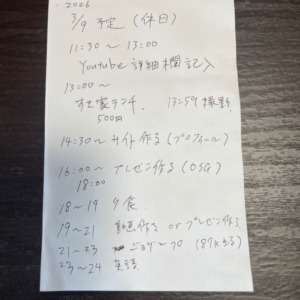 2026
3/9 予定 (休日)
11:30〜13:00
Youtube 詳細欄記入
13:00〜
すき家ランチ、 13:59 撮影
500円
14:30〜 サイト作る (プロフィール)
16:00〜 プレゼン作る (OSG)
18:00
18〜19 夕食、
19〜21 動画作る or プレゼン作る
21〜23
23〜24 英語